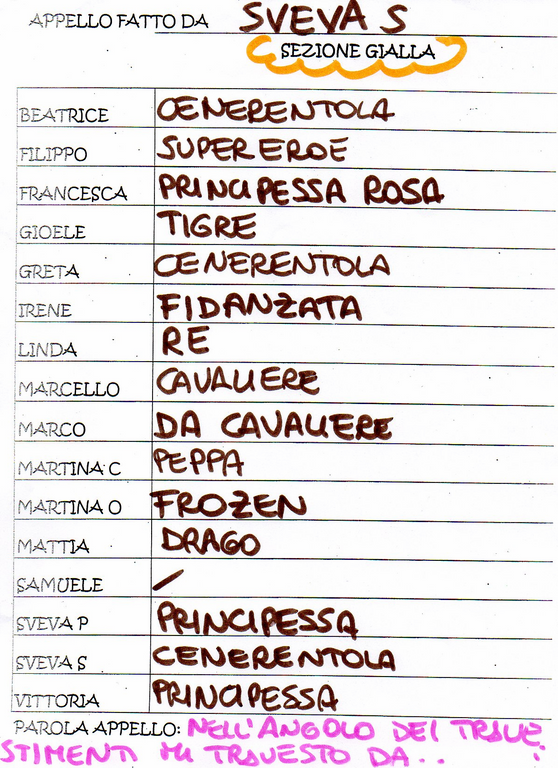 APPELLO FATTO DA SVEVA S
SEZIONE GIALLA
BEATRICE CENERENTOLA
FILIPPO SUPER EROE
FRANCESCA PRINCIPESSA ROSA
GIOELE TIGRE
GRETA CENERENTOLA
IRENE FIDANZATA
LINDA RE
MARCELLO CAVALIERE
MARCO DA CAVALIERE
MARTINA C PEPPA
MARTINA O FROZEN
MATTIA DRAGO
SAMUELE /
SVEVA P PRINCIPESSA
SVEVA S CENERENTOLA
VITTORIA PRINCIPESSA
PAROLA APPELLO: NELL'ANGOLO DEI TRAVE
STIMENTI MI TRAVESTO DA.. :